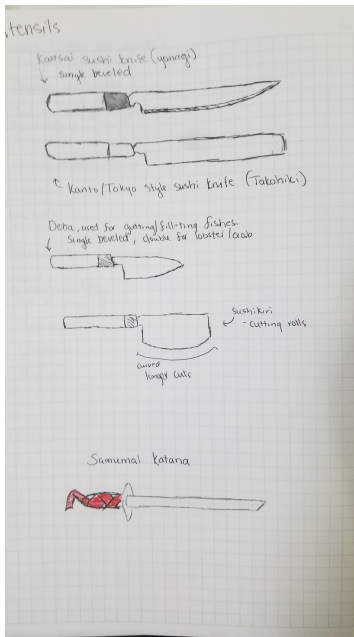 tensils
Kansai sushi knife (yanagi)
single beveled
Kanto/Tokyo style sushi knife (Takohiki)
Deba, used for gutting/filleting fishes.
Single beveled, double for lobster/crab
Sushikiri
- cutting rolls
curved
longer cuts
Samumai Katana